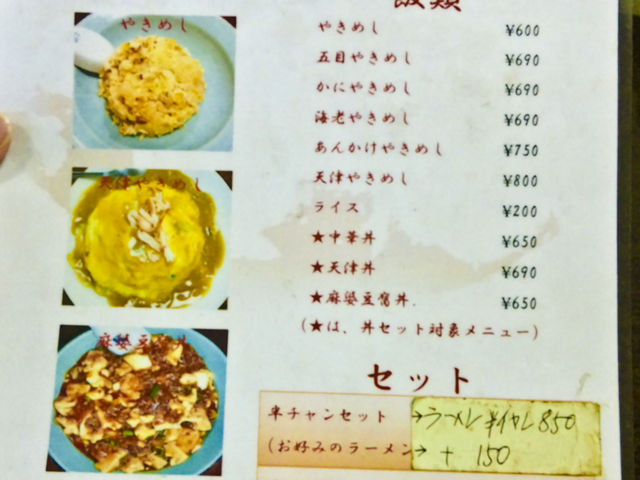 飯類
やきめし
やきめし ¥600
五目やきめし ¥690
かにやきめし ¥690
海老やきめし ¥690
あんかけやきめし ¥750
天津やきめし
天津やきめし ¥800
ライス ¥200
★中華丼 ¥650
★天津丼 ¥690
★麻婆豆腐丼 ¥650
(★は、丼セット対象メニュー)
麻婆豆 丼
セット
半チャンセット →ラーメン 850
(お好みのラーメン → + 150